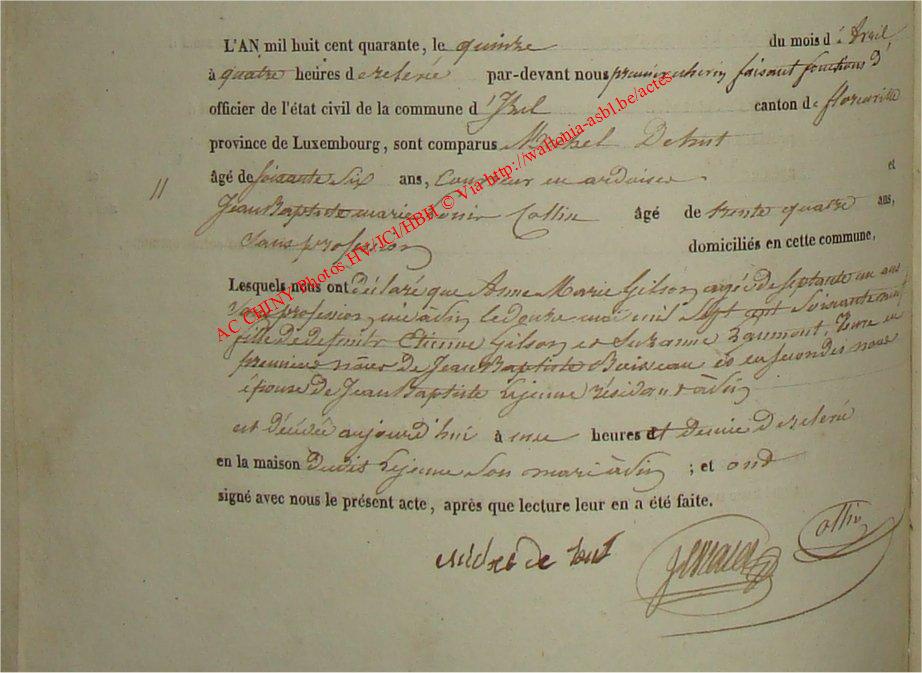 L'AN mil huit cent quarante, le quinze du mois d'Avril
à quatre heures de relevé par-devant nous premier echevin faisant fonctions d'
officier de l'état civil de la commune d'Izel canton de florenville
province de Luxembourg, sont comparus Michel Dehut
âgé de soixante six ans, Couvreur en ardoises et
11 Jean Baptiste marie Collin âgé de trente quatre ans,
Sans profession domiciliés en cette commune,
Lesquels nous ont déclaré que Anne Marie Gilson agée de septante un ans
Sans profession, née à le douze mai mil Sept cent Soixante neuf
fille de defunts Etienne Gilson et Suzanne Veuve en
premieres nôces de Jean Baptiste Buisseau et en secondes noces
épouse de Jean Baptiste Lejeune résidant à
est décédée aujourd'hui à heures et demie de relevé
en la maison dudit Lejeune son mari à ; et ont
signé avec nous le présent acte, après que lecture leur en a été faite.
michel de hut
Collin
AC CHINY Photos HV/ICI/HBH © Via http://wallonia-asbl.be/actes